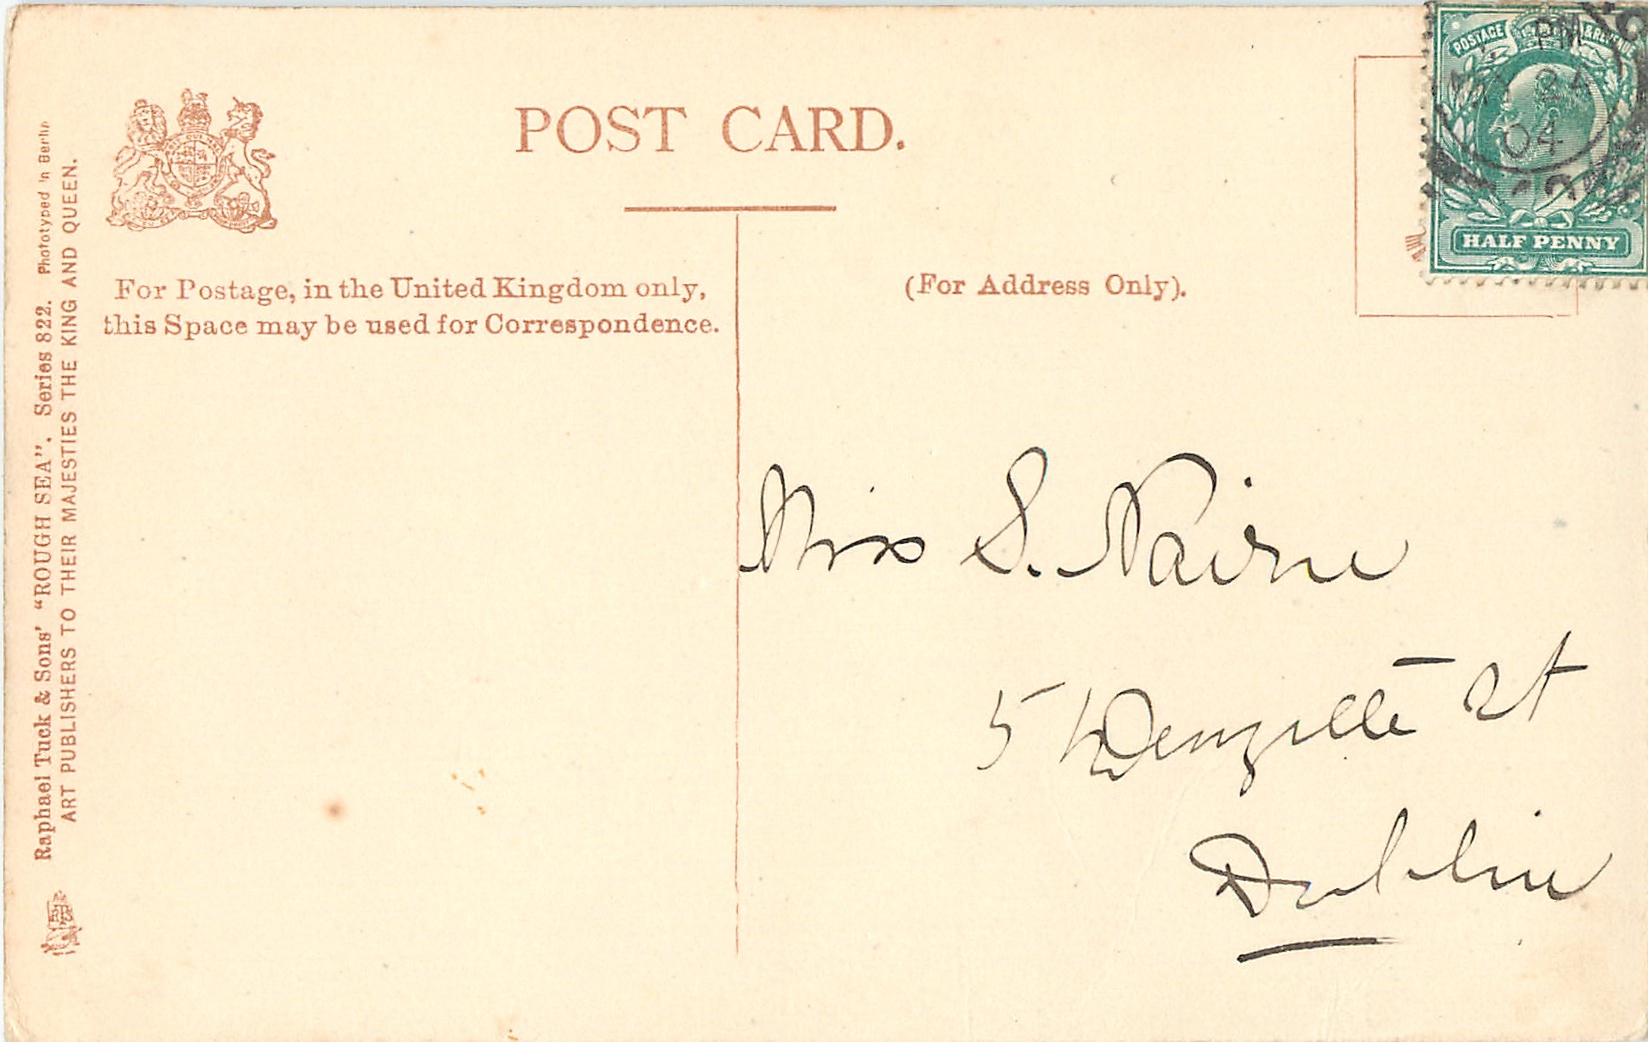 POST CARD.
For Postage, in the United Kingdom only,
this Space may be used for Correspondence.
(For Address Only).
POSTAGE & REVENUE
PM
24
04
HALF PENNY
Miss S. Nairne
5 Denzille St
Dublin
Raphael Tuck & Sons' "ROUGH SEA". Series 822. Phototyped in Berlin
ART PUBLISHERS TO THEIR MAJESTIES THE KING AND QUEEN.